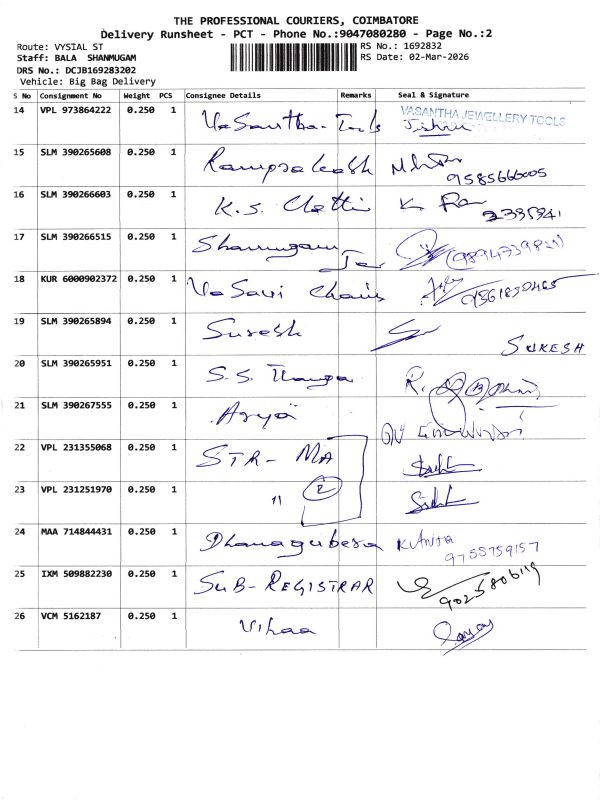 THE PROFESSIONAL COURIERS, COIMBATORE
Delivery Runsheet - PCT - Phone No.:9047080280 - Page No.:2
Route: VYSIAL ST
RS No.: 1692832
Staff: BALA SHANMUGAM
RS Date: 02-Mar-2026
DRS No.: DCJB169283202
Vehicle: Big Bag Delivery
S No Consignment No Weight PCS Consignee Details Remarks Seal & Signature
14 VPL 973864222 0.250 1 Vasantha Tools VASANTHA JEWELLERY TOOLS
15 SLM 390265608 0.250 1 Ramprakash
16 SLM 390266603 0.250 1 K.S. Chetti K
17 SLM 390266515 0.250 1 Shanmugam
18 KUR 6000902372 0.250 1 VaSavi Chains
19 SLM 390265894 0.250 1 Suresh SURESH
20 SLM 390265951 0.250 1 S.S. R.
21 SLM 390267555 0.250 1 Arya
22 VPL 231355068 0.250 1 STR- MA
23 VPL 231251970 0.250 1 " 2
24 MAA 714844431 0.250 1 K. Anita
9755759157
25 IXM 509882230 0.250 1 SUB-REGISTRAR
26 VCM 5162187 0.250 1 Vihaa